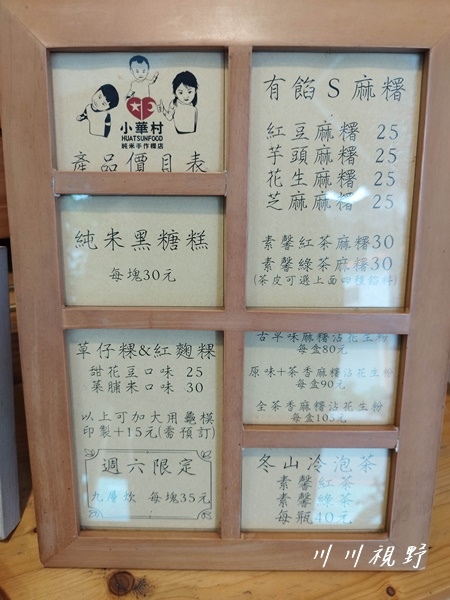 小華村
HUATSUNFOOD
純米手作粿店
產品價目表
純米黑糖糕
每塊30元
草仔粿&紅麴粿
甜花豆口味 25
菜脯米口味 30
以上可加大用龜模
印製+15元(需預訂)
週六限定
九層炊 每塊35元
有餡S麻糬
紅豆麻糬 25
芋頭麻糬 25
花生麻糬 25
芝麻麻糬 25
素馨紅茶麻糬30
素馨綠茶麻糬30
(茶皮可選上面四種餡料)
古早味麻糬沾花生粉
每盒80元
原味+茶香麻糬沾花生粉
每盒90元
全茶香麻糬沾花生粉
每盒105元
冬山冷泡茶
素馨紅茶
素馨綠茶
每瓶40元
川川視野